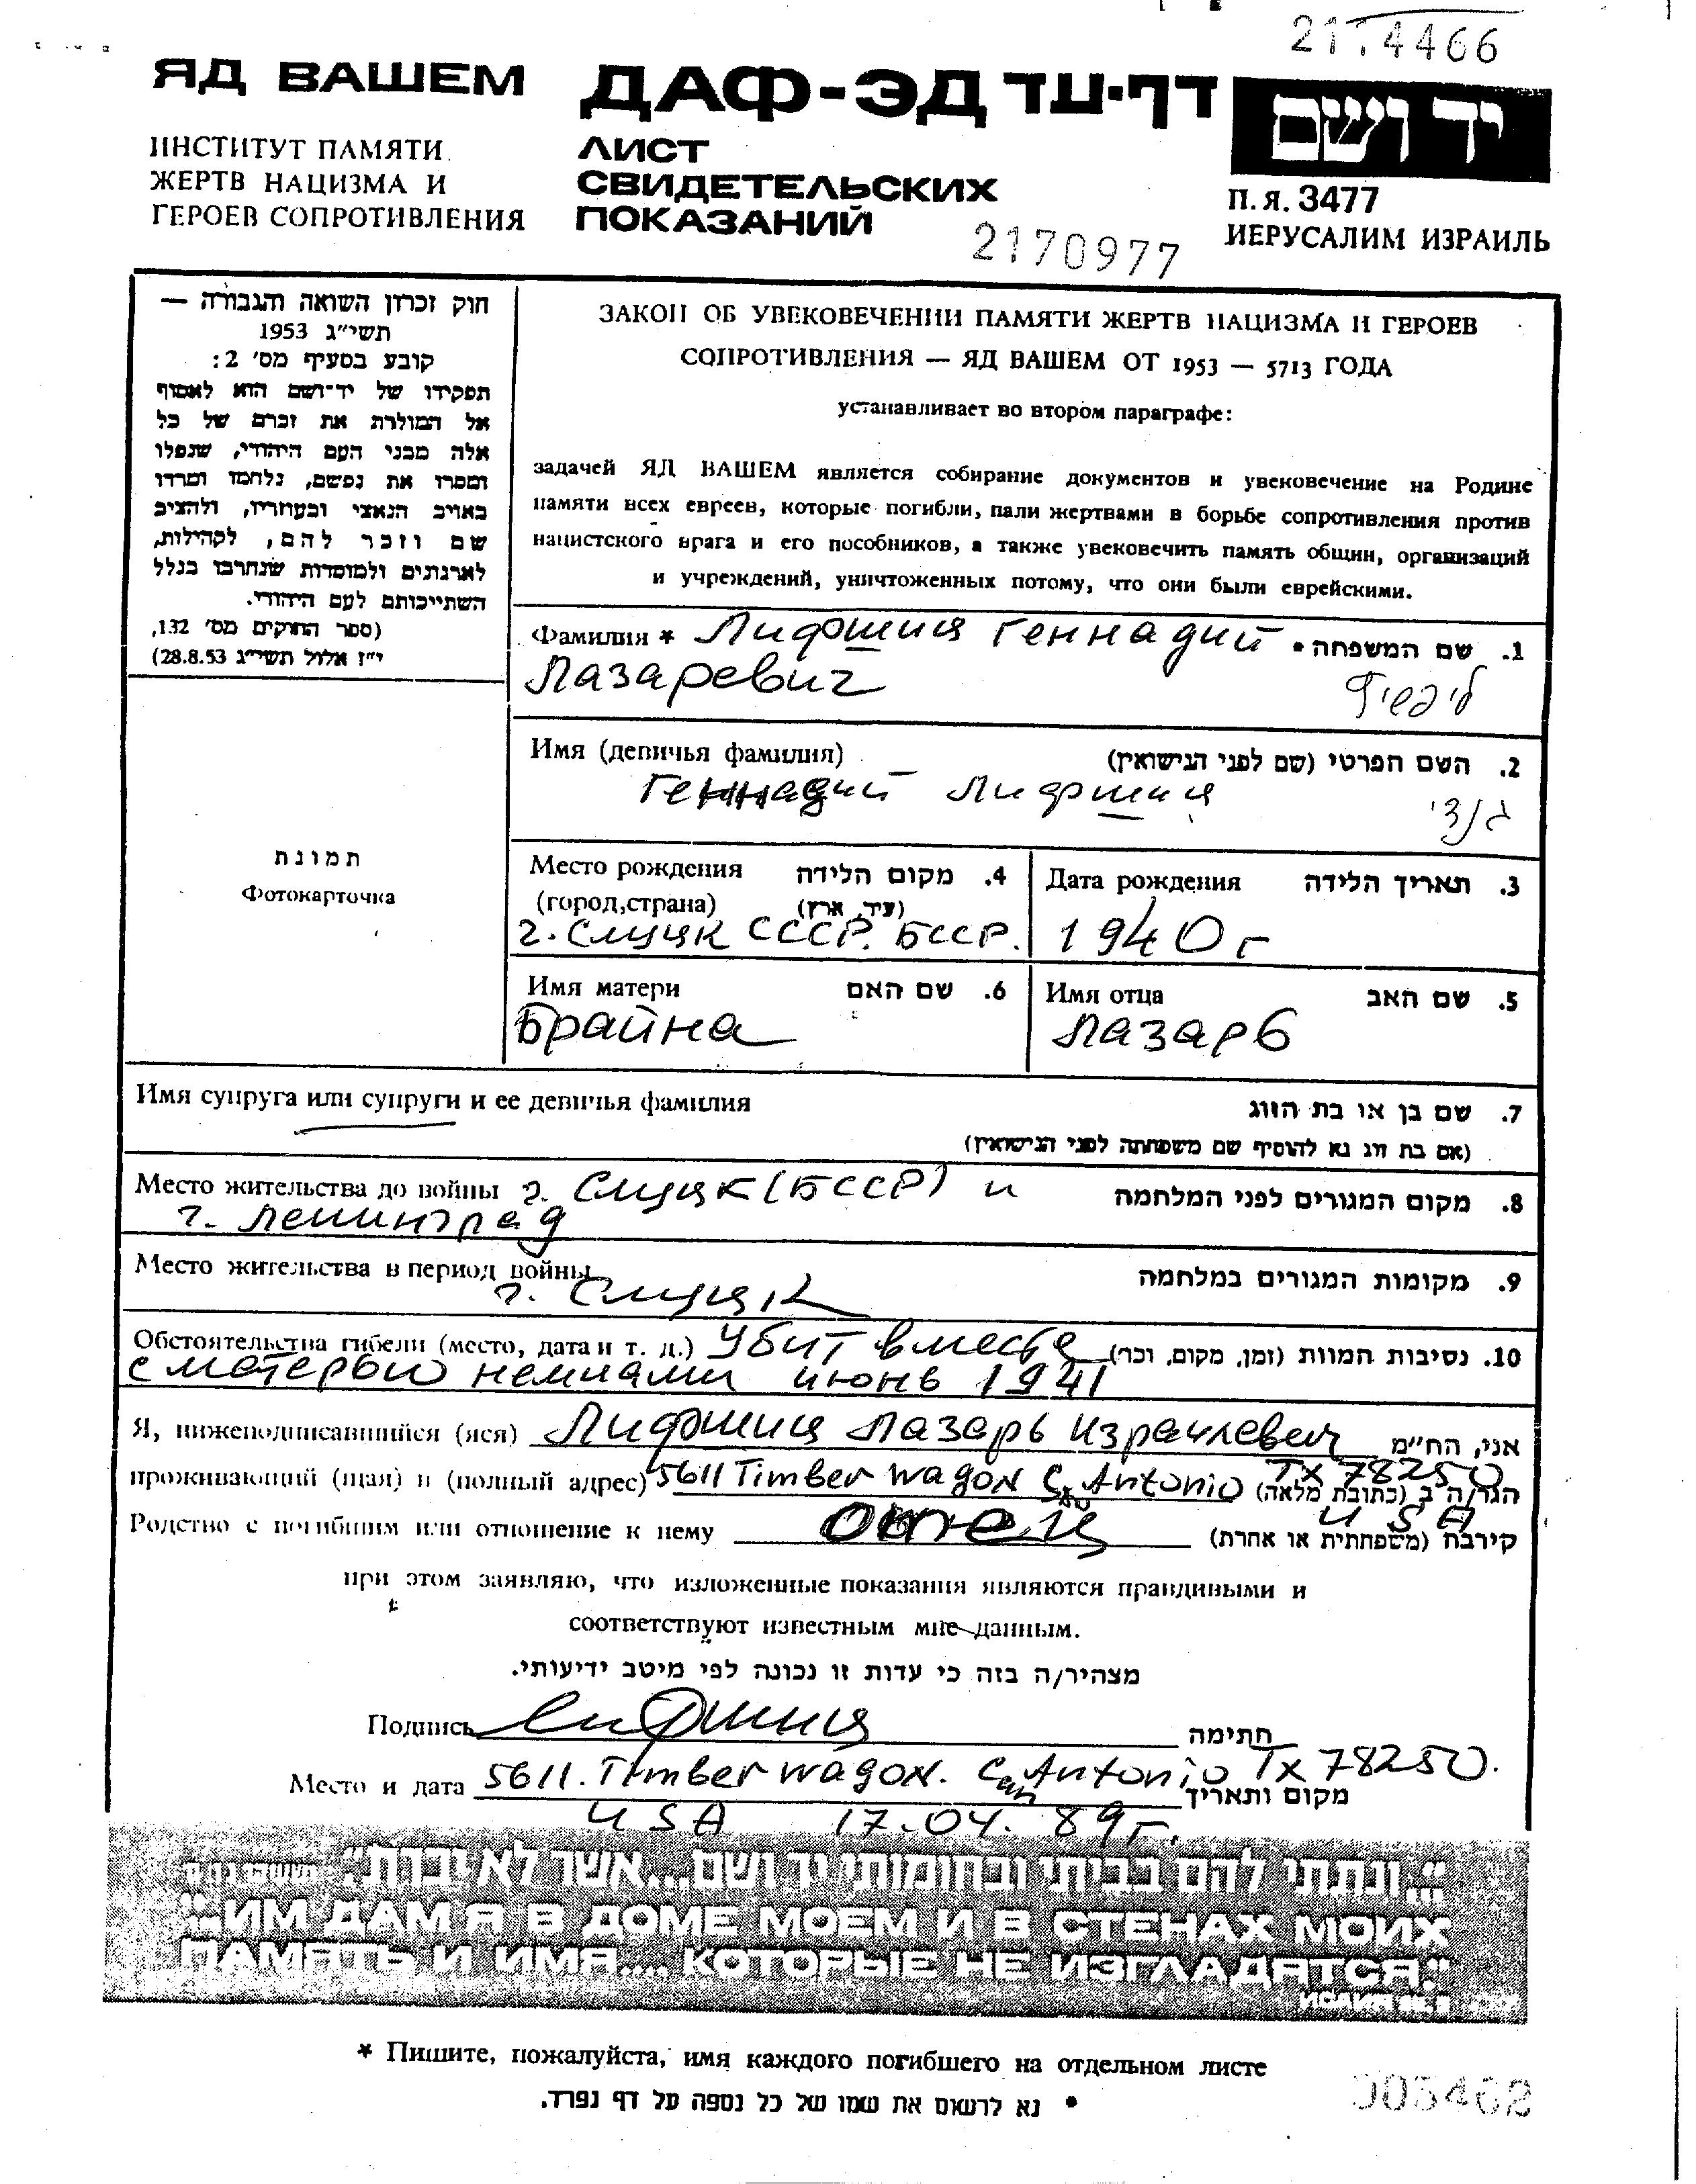 21.4466
ЯД ВАШЕМ
ИНСТИТУТ ПАМЯТИ
ЖЕРТВ НАЦИЗМА И
ГЕРОЕВ СОПРОТИВЛЕНИЯ
ДАФ-ЭД דף-עד
ЛИСТ
СВИДЕТЕЛЬСКИХ
ПОКАЗАНИЙ
2170977
יד ושם
П.Я. 3477
ИЕРУСАЛИМ ИЗРАИЛЬ
חוק זכרון השואה והגבורה —
תשי״ג 1953
קובע בסעיף מס׳ 2:
תפקידו של יד־ושם הוא לאסוף
אל המולדת את זכרם של כל
אלה מבני העם היהודי, שנפלו
ומסרו את נפשם, נלחמו ומרדו
באויב הנאצי ובעוזריו, ולהציב
שם וזכר להם, לקהילות,
לארגונים ולמוסדות שנחרבו בגלל
השתייכותם לעם היהודי.
(ספר החוקים מס׳ 132,
י״ז אלול תשי״ג 28.8.53)
ЗАКОН ОБ УВЕКОВЕЧЕНИИ ПАМЯТИ ЖЕРТВ НАЦИЗМА И ГЕРОЕВ
СОПРОТИВЛЕНИЯ — ЯД ВАШЕМ ОТ 1953 — 5713 ГОДА
устанавливает во втором параграфе:
задачей ЯД ВАШЕМ является собирание документов и увековечение на Родине
памяти всех евреев, которые погибли, пали жертвами в борьбе сопротивления против
нацистского врага и его пособников, а также увековечить память общин, организаций
и учреждений, уничтоженных потому, что они были еврейскими.
Фамилия * Лифшиц Геннадий • שם המשפחה .1
Лазаревич ליפשיץ
Имя (девичья фамилия) השם הפרטי (שם לפני הנישואין) .2
Геннадий Лифшиц גנדי
תמונת
Фотокарточка
Место рождения מקום הלידה .4
(город,страна) (עיר, ארץ)
г. Слуцк СССР. БССР.
Дата рождения תאריך הלידה .3
1940 г
Имя матери שם האם .6
Брайна
Имя отца שם האב .5
Лазарь
Имя супруга или супруги и ее девичья фамилия שם בן או בת הזוג .7
(אם בת זוג נא להוסיף שם משפחתה לפני הנישואין)
Место жительства до войны г. Слуцк (БССР) и מקום המגורים לפני המלחמה .8
г. Ленинград
Место жительства в период войны מקומות המגורים במלחמה .9
г. Слуцк
Обстоятельства гибели (место, дата и т. д.) Убит вместе נסיבות המוות (זמן, מקום, וכו׳) .10
с матерью немцами июнь 1941
Я, нижеподписавшийся (яся) Лифшиц Лазарь Израилевич אני, הח״מ
проживающий (щая) в (полный адрес) 5611 Timber wagon San Antonio TX 78250 הגר/ה ב (כתובת מלאה)
USA
Родство с погибшим или отношение к нему отец קירבה (משפחתית או אחרת)
при этом заявляю, что изложенные показания являются правдивыми и
соответствуют известным мне данным.
מצהיר/ה בזה כי עדות זו נכונה לפי מיטב ידיעותי.
Подпись Лифшиц חתימה
Место и дата 5611. Timber wagon. San Antonio TX 78250. מקום ותאריך
USA 17.04.89г.
״...ונתתי להם בביתי ובחומותי יד ושם...אשר לא יכרת״.
״...ИМ ДАМ Я В ДОМЕ МОЕМ И В СТЕНАХ МОИХ
ПАМЯТЬ И ИМЯ.... КОТОРЫЕ НЕ ИЗГЛАДЯТСЯ."
* Пишите, пожалуйста, имя каждого погибшего на отдельном листе
• נא לרשום את שמו של כל נספה על דף נפרד.
005462